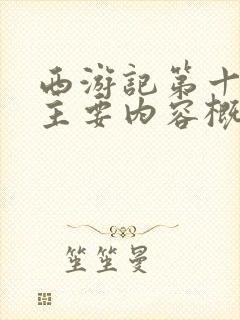 西游记第十
主要内容概
笙笙曼